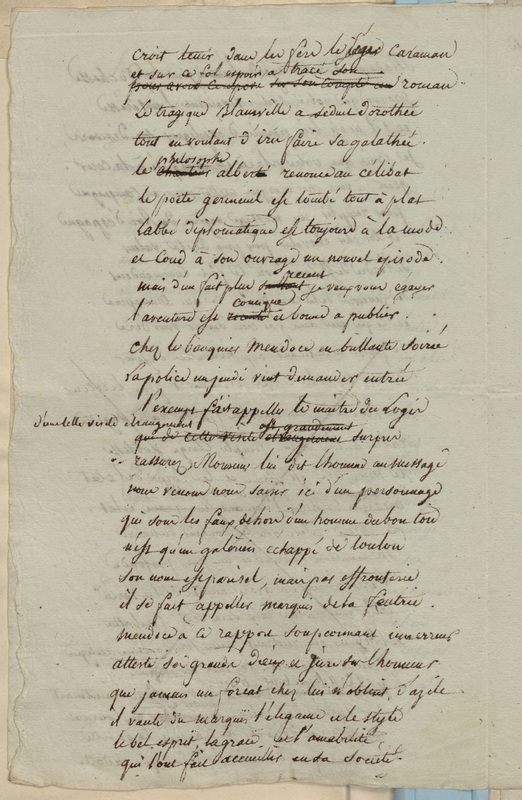 croit tenir dans les fers le Caraman
et sur ce fol espoir a tracé son
sur son compte un roman
Le tragique Blainville a seduit dorothée
tout en voulant d'elle faire sa galathée.
philosophe
le albert renonce au célibat
le poëte germeuil est tombé tout à plat
labbé diplomatique est toujours à la mode
et coud à son ouvrage un nouvel épisode.
recent
mais d'un fait plus je veux vous égayer
comique
l'aventure est et bonne a publier.
chez le banquier Mendoce en brillante soirée
la police un jeudi vient demander entrée
l'exempt fait appeller le maitre du logis
d'une telle visite etrangement
est grandement
qui de cette visite etrangement surpris
rassurez Monsieur lui dit lhomme au message
nous venons nous saisir ici d'un personnage
qui sous les faux dehors d'un homme du bon ton
n'est qu'un galerien echappé de toulon
son nom est parisel, mais pas effronterie
il se fait appeller marquis de la feutrie.
mendoce à ce rapport soupconnant une erreur
atteste ses grands dieux et jure sur lhonneur
que jamais un forcat chez lui n'obtint d'azile
il vante du marquis l'élegance et le style
le bel esprit, la grace, et l'amabilité
qui l'ont fait accueillir en sa société.